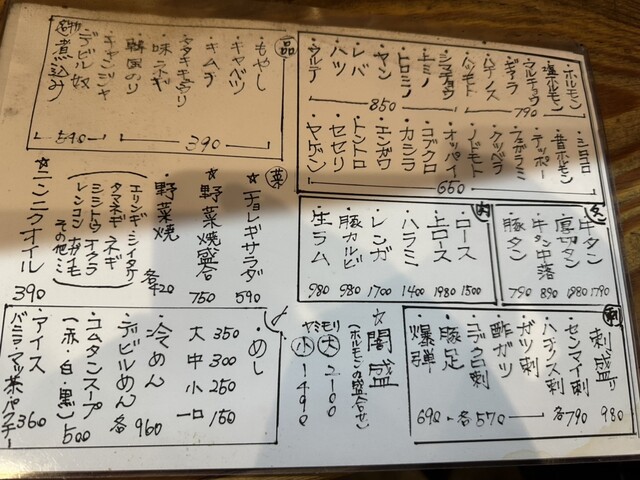 ・ホルモン
・塩ホルモン
・マルチョウ
・ギアラ
790
・ハチノス
・ハツモト
・シマチョウ
・上ミノ
・ヒロミノ
・ヤン
・レバ
・ハツ
・ウルテ
850
・シロコロ
・昔ホルモン
・テッポー
・フグラミ
・クツベラ
・ノドモト
・オッパイ
・コブクロ
・カシラ
・エンガワ
・トントロ
・セセリ
・ヤゲン
660
一品
・もやし
・キャベツ
・キムチ
・タタキキュウリ
・味ネギ
・韓国のり
390
・キャンジャ
・デビル奴
名物
煮込み
590
菜
☆チョレギサラダ 590
☆野菜焼盛合 750
野菜焼 各420
エリンギ・シイタケ
タマネギ ネギ
シシトウ オクラ
レンコン ガイモ
その他ミ
☆ニンニクオイル 390
タン
・牛タン 1790
・厚切タン 1980
・牛タン中落 890
・豚タン 790
肉
・ロース 1500
・上ロース 1980
・ハラミ 1400
・レンガ 1700
・豚カルビ 980
・生ラム 980
刺
・刺盛り 980
・センマイ刺
・ハチノス刺
各790
・ガツ刺
・酢ガツ
・コブクロ刺
各570
・豚足
・爆弾 690
☆闇盛
(ホルモンの盛合せ)
ヤミモリ
大 2100
小 1490
・めし
大 350
中 300
小 250
一口 150
・冷めん
・デビルめん
各960
・コムタンスープ
(赤・白・黒) 500
・アイス
バニラ・マッ茶・パクチー 360